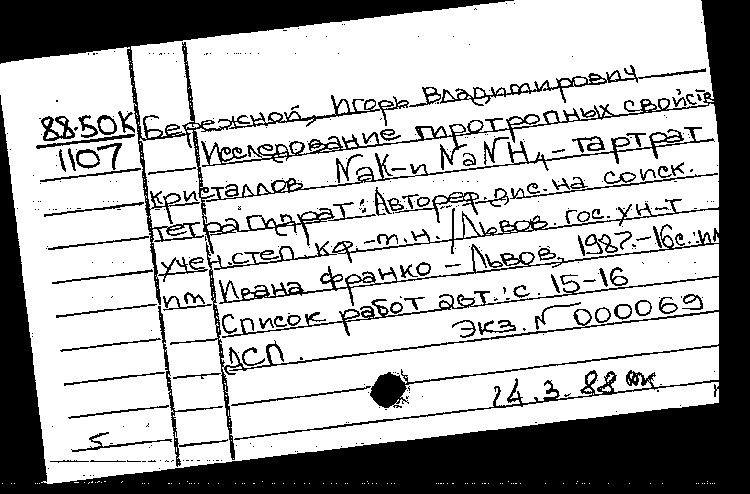 88-50К Бережной, Игорь Владимирович
1107 Исследование гиротропных свойств
кристаллов NaK-и NaNH4-тартрат
тетрагидрат: Автореф. дис. на соиск.
учен. степ. к.ф.-м.н. /Львов. гос. ун-т
им. Ивана Франко - Львов, 1987.-16с.:ил
Список работ авт.: с. 15-16
ДСП. Экз. N 000069
14.3.88
5